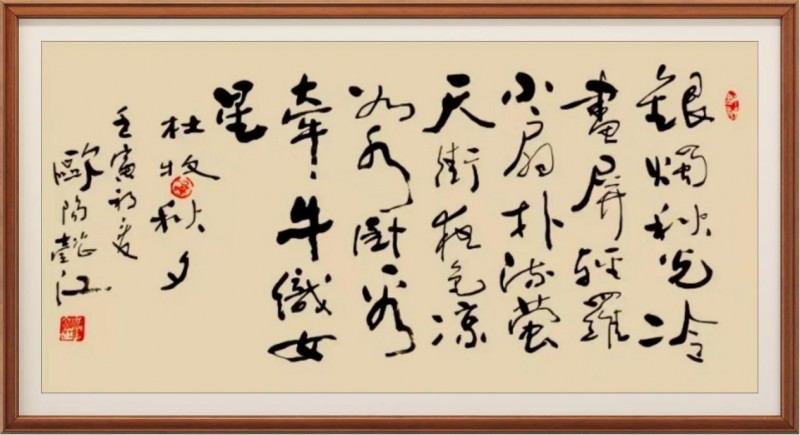 銀燭秋光冷
畫屏輕羅
小扇扑流萤
天街夜色凉
如水卧看
牽牛織女
星
杜牧秋夕
壬寅初夏
歐陽江